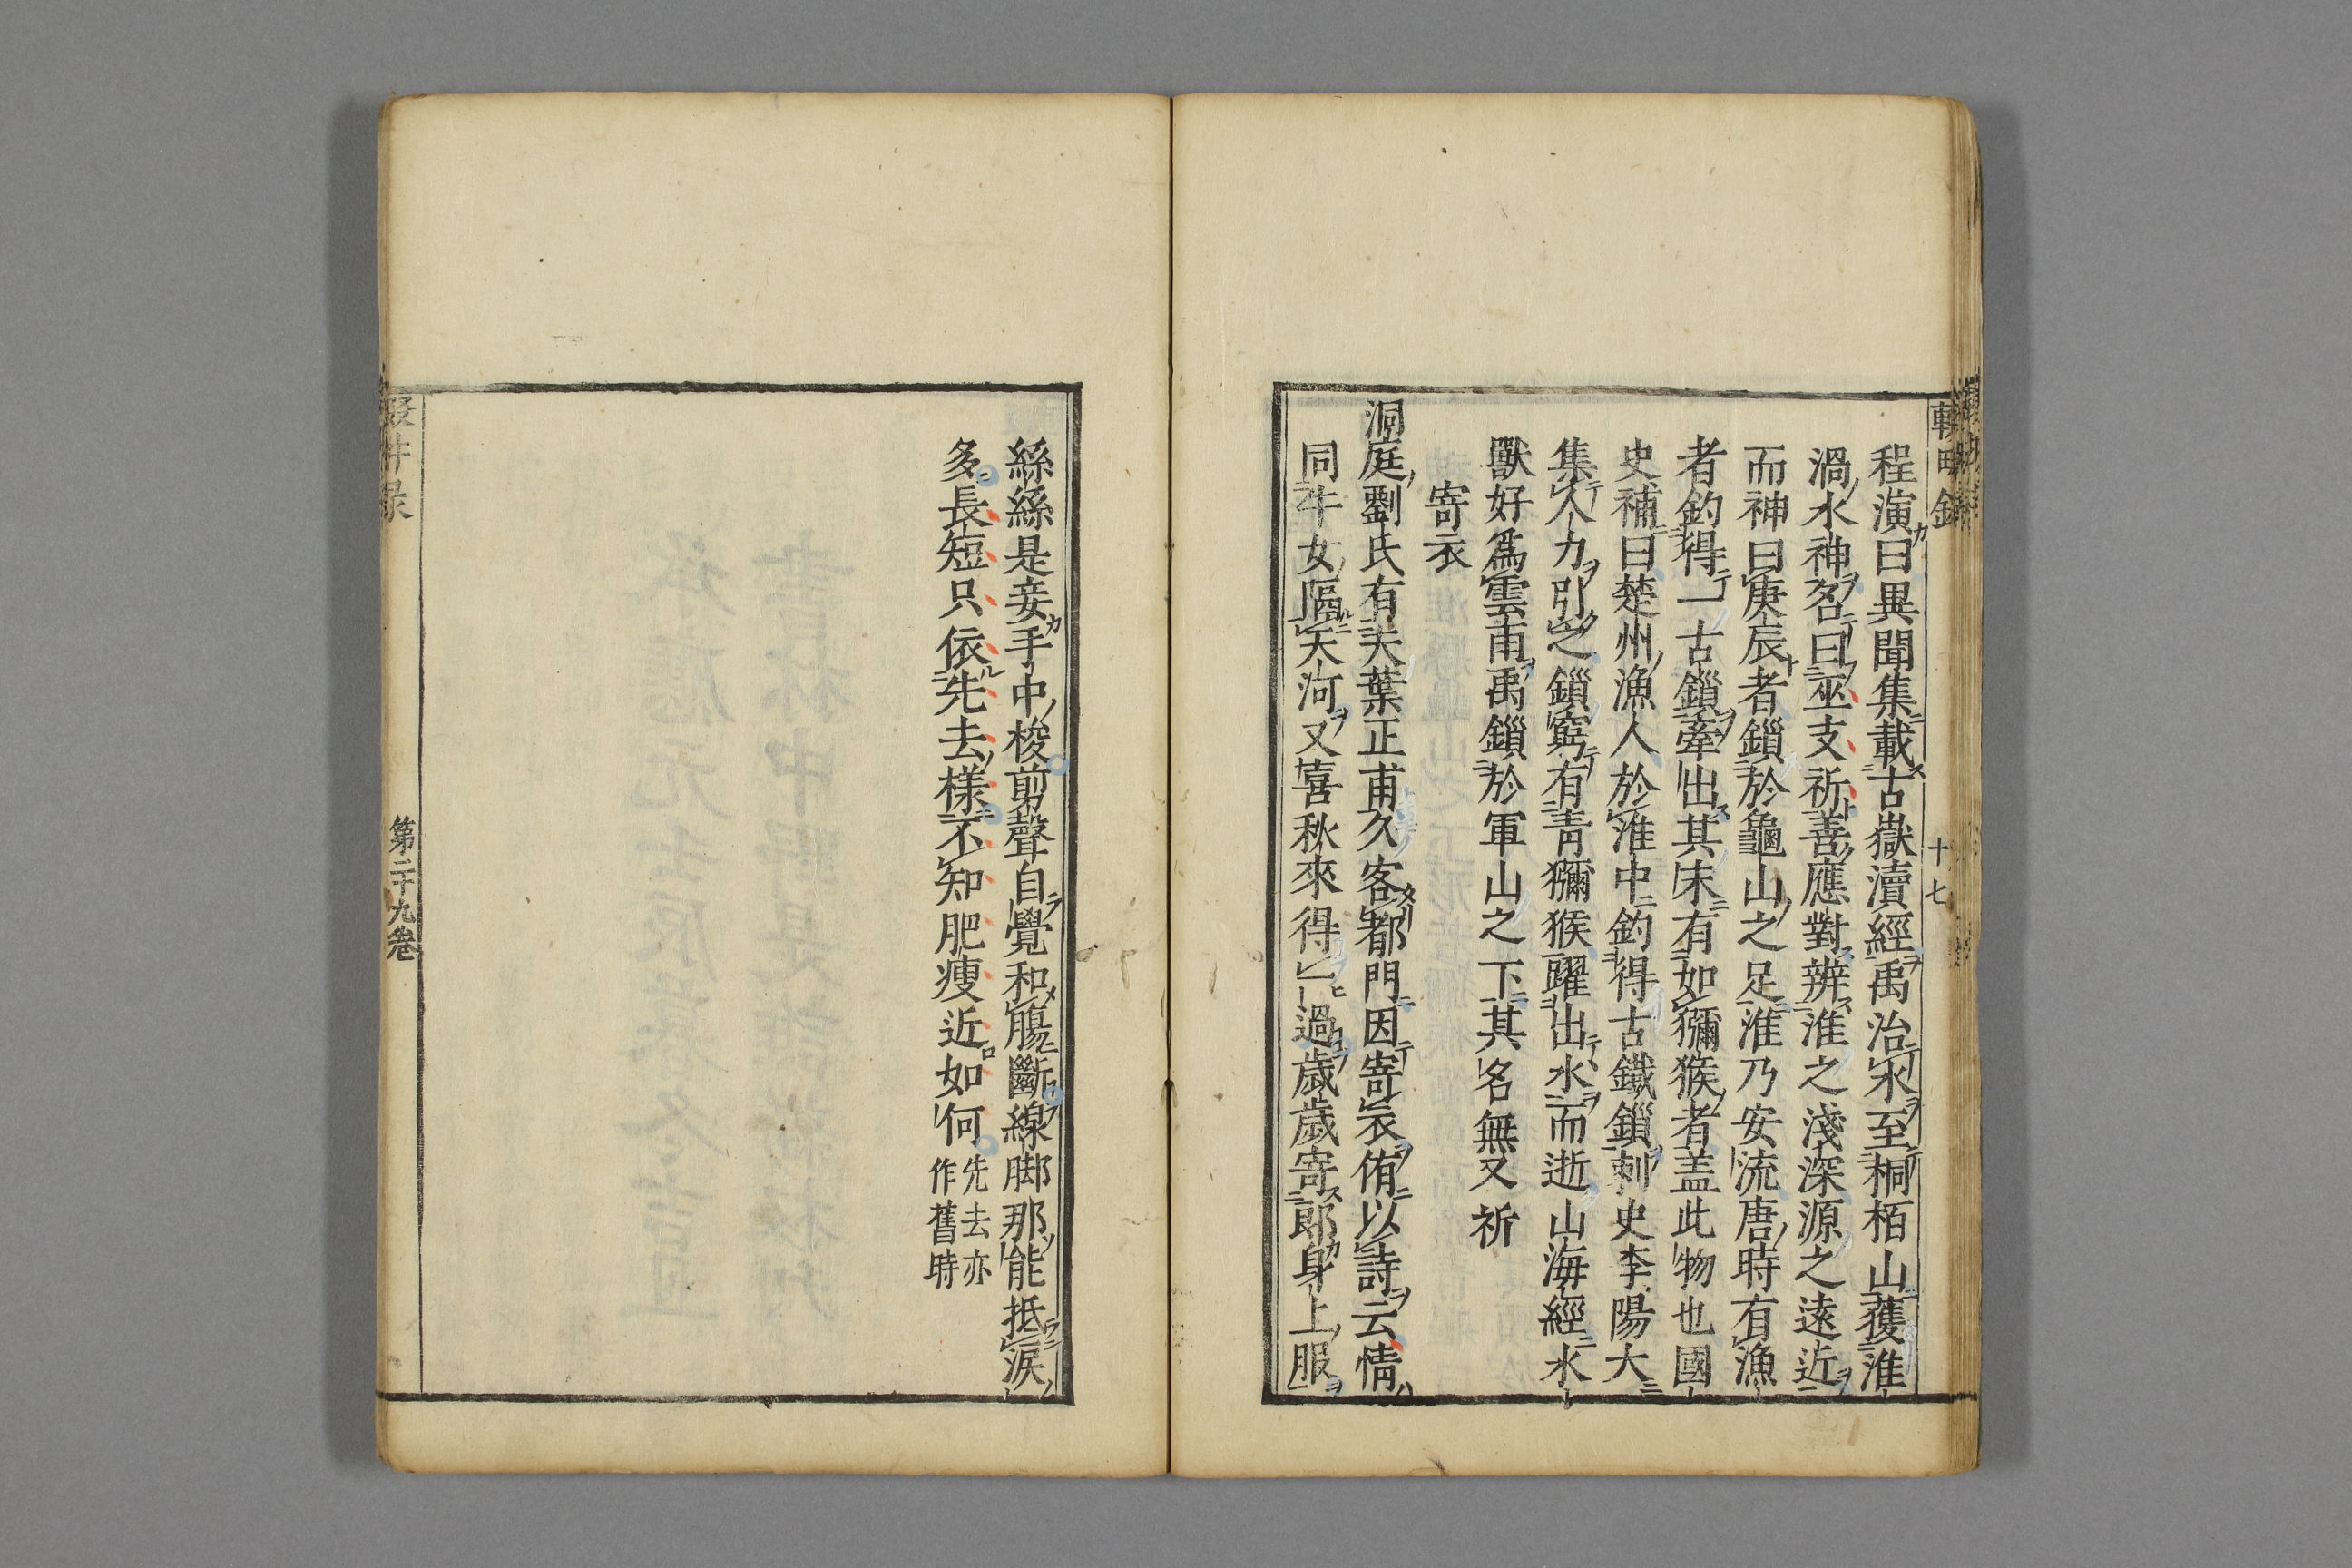 輟畊錄
十七
程演曰異聞集載古嶽瀆經禹治水至桐栢山獲淮
渦水神名曰巫支祈善應對辨淮之淺深源之遠近
而神曰庚辰者鎖於龜山之足淮乃安流唐時有漁
者釣得一古鎖牽出其末有如獼猴者盖此物也國
史補曰楚州漁人於淮中釣得古鐵鎖刺史李陽大
集人力引之鎖窮有青獼猴躍出水而逝山海經水
獸好為雲雨禹鎖於軍山之下其名無支祈
寄衣
洞庭劉氏有夫葉正甫久客都門因寄衣侑以詩云情
同牛女隔天河又喜秋來得一過歲歲寄郎身上服
絲絲是妾手中梭剪聲自覺和腸斷線脚那能抵淚
多長短只依先去樣不知肥瘦近如何先去亦
作舊時
第二十九卷